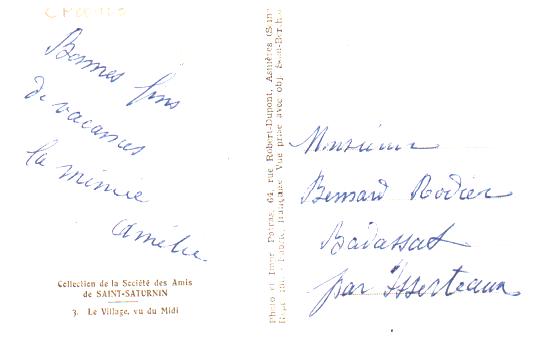 Bonnes fins
de vacances
la mimie
Amélie
Collection de la Société des Amis
de SAINT-SATURNIN
3. Le Village, vu du Midi
Photo et Impr. Poiras, 64, rue Robert-Dupont, Asnières (Seine)
française Vue prise avec obj. Som-Berthiot
Monsieur
Bernard Rodier
Badassat
par Isserteaux